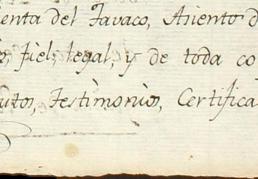 enta del Tavaco, Asiento d
fiel, legal, y de toda co
utos, Testimonios, Certifica